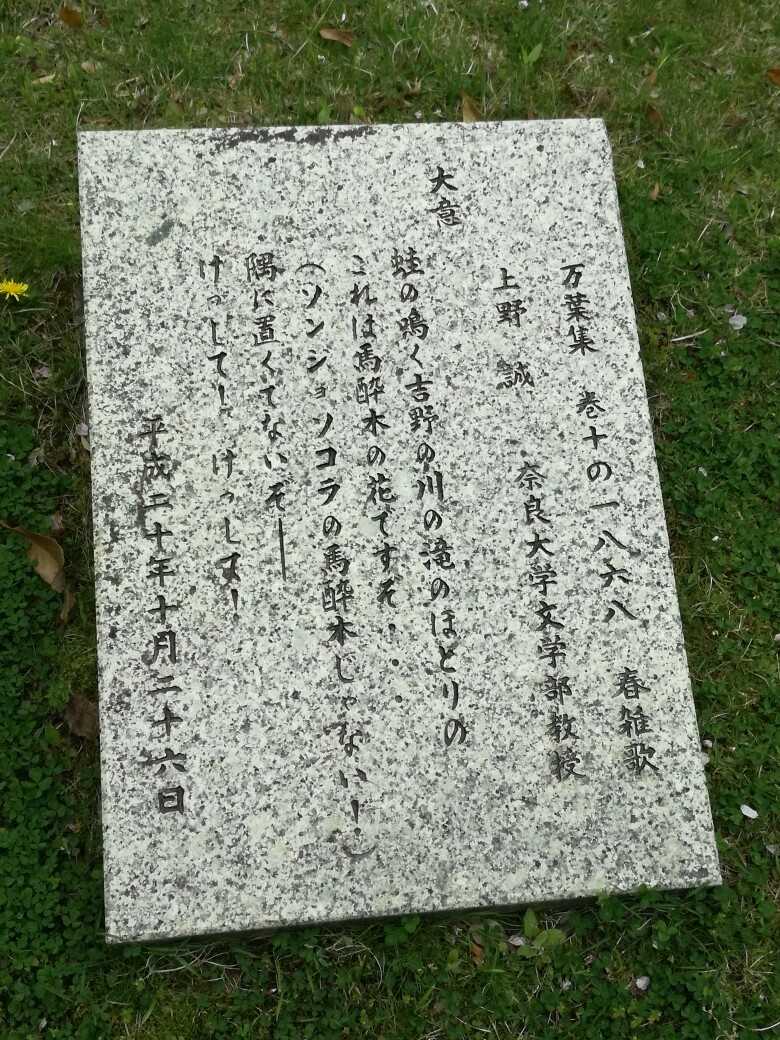 万葉集　巻十の一八六八　春雑歌
上野　誠　奈良大学文学部教授
大意
蛙の鳴く吉野の川の滝のほとりの
これは馬酔木の花ですぞ・・・
（ソンジョソコラの馬酔木じゃない！）
隅に置くてないぞ―
けっして！けっして！
平成二十年十月二十六日